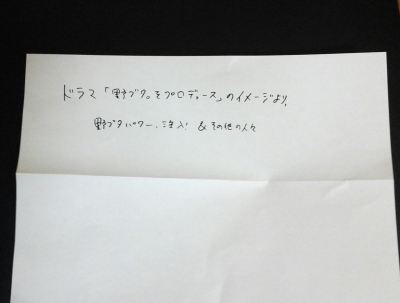 ドラマ「野ブタ。をプロデュース」のイメージより、
野ブタパワー、注入! & その他の人々